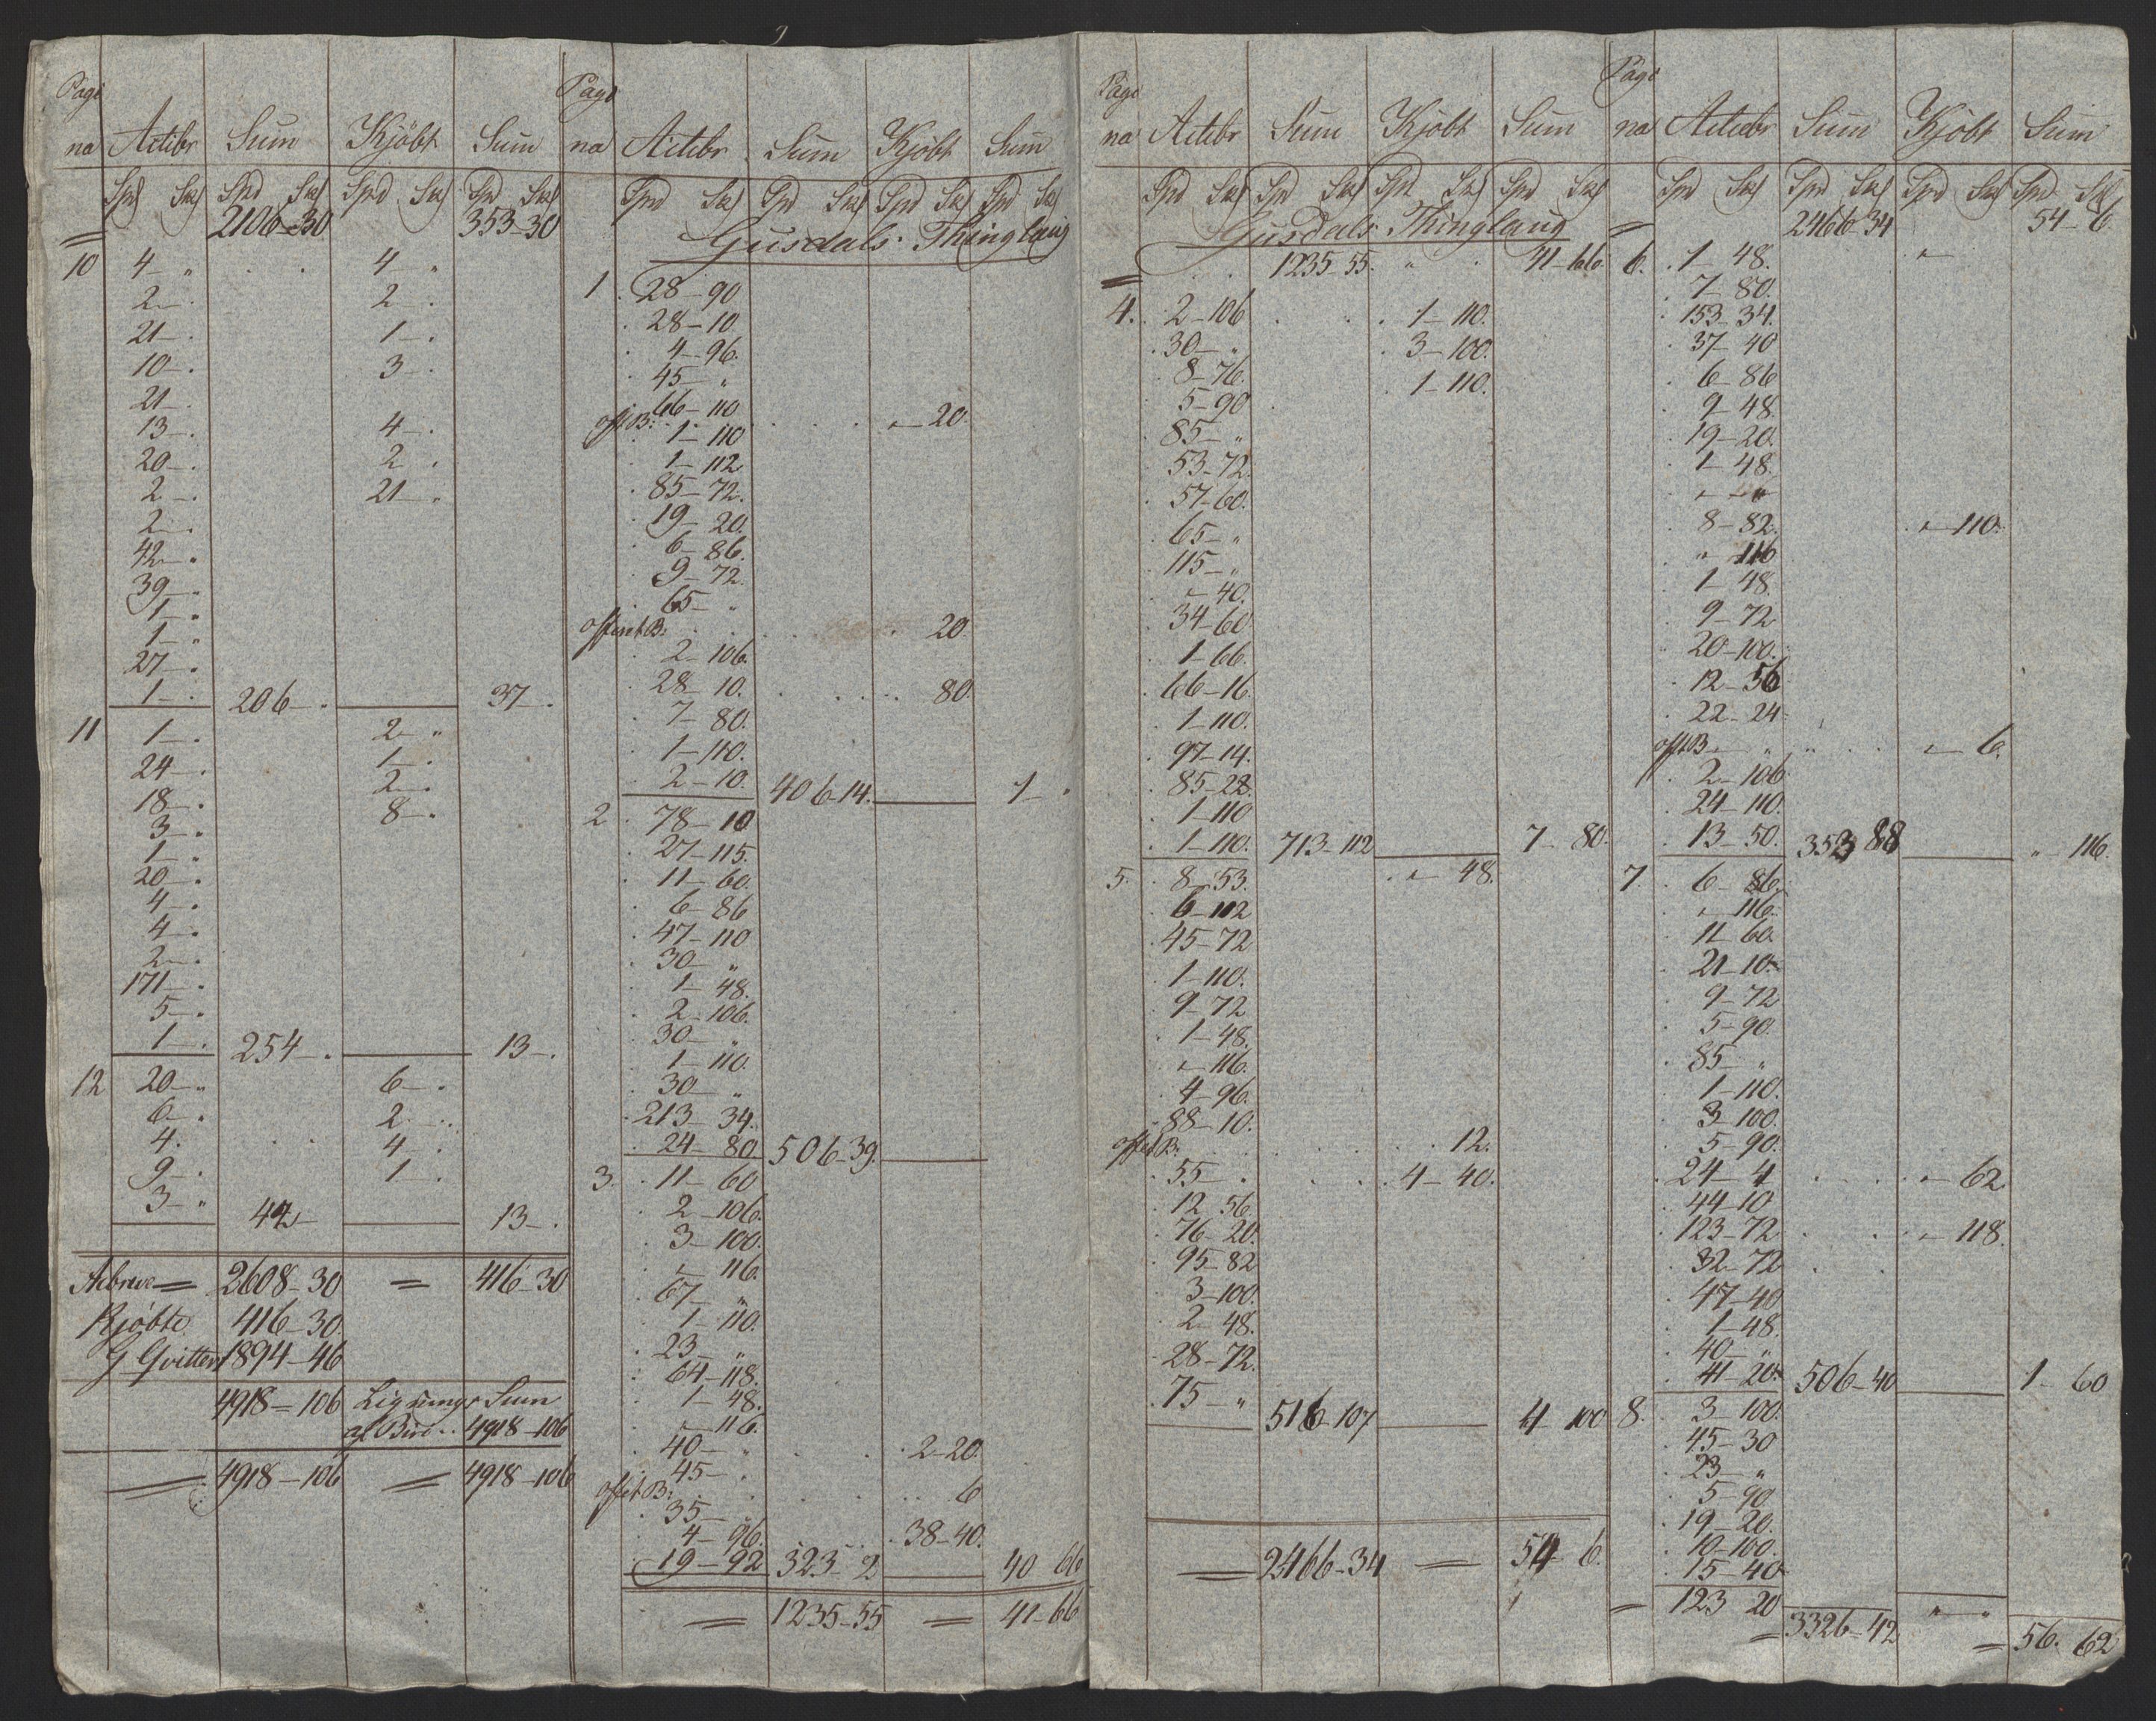 Pagi
na Actebr Sum Kjöbt Sum
Spd Sk Spd Sk Spd Sk Spd Sk
2106-30 353-30
10 4 - " 4 "
2 - 2 -
21 - 1 -
10 - 3 -
21 -
13 - 4 -
20 - 2 -
2 - 21 -
2 -
42 -
39 -
1 -
1 -
27 -
1 - 206 - 37 -
11 1 - 2 - "
24 - 1 -
18 - 2 -
3 - 8 -
1 -
20 -
4 -
4 -
2 -
171 -
5 -
1 - 254 - 13 -
12 20 - 6 -
6 - 2 -
4 - 4 -
9 - 1 -
3 - " 42 - 13 -
2608-30 = 416-30
Kjöbte 416-30
G Qvittert 1894-46
4918-106 Lignings Sum
af Biri 4918-106
4918-106 = 4918-106
Pagi
na Actebr Sum Kjöbt Sum
Spd Sk Spd Sk Spd Sk Spd Sk
Gusdals Thinglaug
1 28-90
28-10
4-96
45 - "
66-110
offt B: - 20
1-110
1-112
85-72
19-20
6-86
9-72
65 - "
offent B: 20
2-106
28-10 80
7-80
1-110
2-10 406-14 1 -
2 78-10
27-115
11-60
6-86
47-110
30 - "
1-48
2-106
30 - "
1-110
30 - "
213-34
24-80 506-39
3. 11-60
2-106
3-100
- 116
67 - "
1-110
23 - "
64-118
1-48
- 116
40 - " 2-20
45 -
offt B: 6
35 -
4-96 38-40
19-92 323-2 40 66
= 1235-55 = 41-66
Pagi
na Actebr Sum Kjöbt Sum
Spd Sk Spd Sk Spd Sk Spd Sk
Gusdals Thinglaug
1235-55 " 41-66
4. 2-106 1-110
30 - " 3-100
8-76 1-110
5-90
85 - "
53-72
57-60
65 - "
115 - "
- 40
34-60
1-66
66-16
1-110
97-14
85-28
1-110
1-110 713-112 7-80
5. 8-53 - 48
6-112
45-72
1-110
9-72
1-48
- 116
4-96
88-10
offt B: 12
55 - 4-40
12 56
76-20
95-82
3-100
2-48
28-72
75 - " 516-107 4-100
= 2466-34 = 54 6
Pagi
na Actebr Sum Kjöbt Sum
Spd Sk Spd Sk Spd Sk Spd Sk
2466-34 54-6
6. 1-48 -
7-80
153-34
37-40
6-86
9-48
19-20
1-48
8-82 - 110
" 116
1-48
9-72
20-100
12-56
22-24
offt B - 6
2-106
24-110
13-50 353 88 " - 116
7. 6-86
- 116
11-60
21-10
9-72
5-90
85 - "
1-110
3-100
5-90
24-4 - 62
44-10
123-72 - 118
32-72
47-40
1-48
40 - "
41-20 506-40 1-60
8. 3-100
45-30
23 - "
5-90
19-20
10-100
15-40
= 123 20 " "
= 3326-42 = 56 62